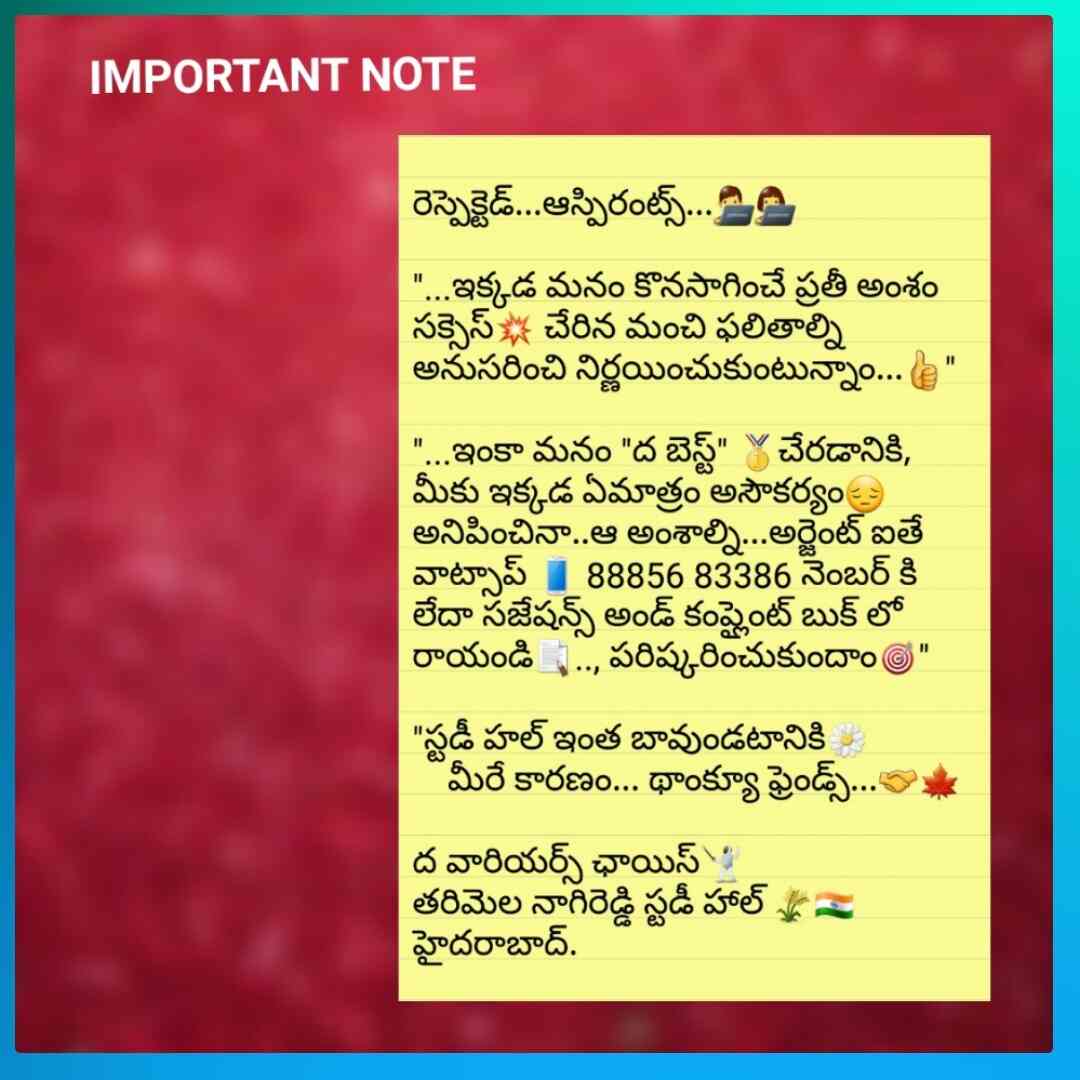 IMPORTANT NOTE
రెస్పెక్టెడ్...ఆస్పిరంట్స్...👨‍💻👩‍💻
"...ఇక్కడ మనం కొనసాగించే ప్రతీ అంశం
సక్సెస్💥 చేరిన మంచి ఫలితాల్ని
అనుసరించి నిర్ణయించుకుంటున్నాం...👍"
"...ఇంకా మనం "ద బెస్ట్" 🏅చేరడానికి,
మీకు ఇక్కడ ఏమాత్రం అసౌకర్యం😔
అనిపించినా..ఆ అంశాల్ని...అర్జెంట్ ఐతే
వాట్సాప్ 📱 88856 83386 నెంబర్ కి
లేదా సజేషన్స్ అండ్ కంప్లైంట్ బుక్ లో
రాయండి📝.., పరిష్కరించుకుందాం🎯"
"స్టడీ హల్ ఇంత బావుండటానికి🌼
మీరే కారణం... థాంక్యూ ఫ్రెండ్స్...🤝🍁
ద వారియర్స్ ఛాయిస్🤺
తరిమెల నాగిరెడ్డి స్టడీ హాల్ 🌾🇮🇳
హైదరాబాద్.